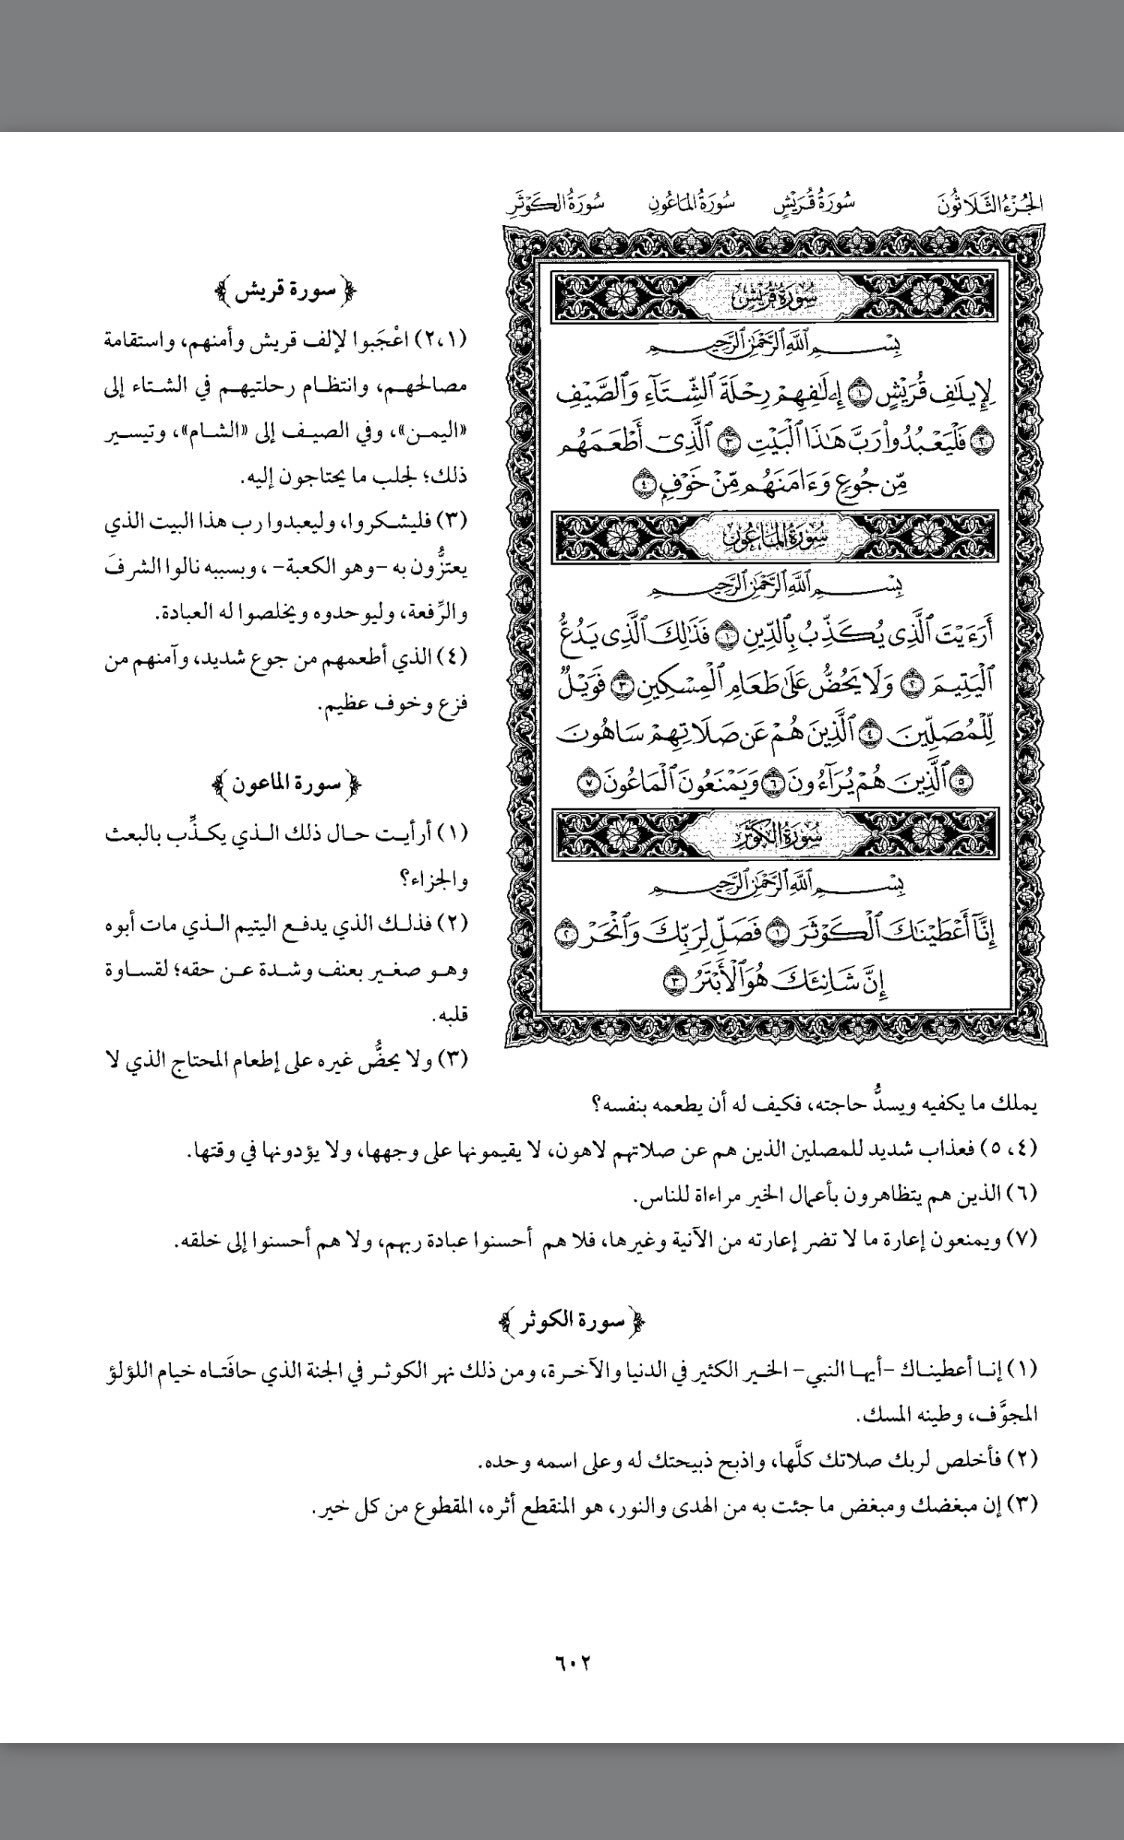 الجُزْءُ الثَّلَاثُونَ سُورَةُ قُرَيْشٍ سُورَةُ المَاعُونِ سُورَةُ الكَوْثَرِ
سُورَةُ قُرَيْشٍ
بِسْمِ ٱللَّهِ ٱلرَّحْمَٰنِ ٱلرَّحِيمِ
لِإِيلَٰفِ قُرَيْشٍ ١ إِۦلَٰفِهِمْ رِحْلَةَ ٱلشِّتَآءِ وَٱلصَّيْفِ
٢ فَلْيَعْبُدُوا۟ رَبَّ هَٰذَا ٱلْبَيْتِ ٣ ٱلَّذِىٓ أَطْعَمَهُم
مِّن جُوعٍ وَءَامَنَهُم مِّنْ خَوْفٍۭ ٤
سُورَةُ المَاعُونِ
بِسْمِ ٱللَّهِ ٱلرَّحْمَٰنِ ٱلرَّحِيمِ
أَرَءَيْتَ ٱلَّذِى يُكَذِّبُ بِٱلدِّينِ ١ فَذَٰلِكَ ٱلَّذِى يَدُعُّ
ٱلْيَتِيمَ ٢ وَلَا يَحُضُّ عَلَىٰ طَعَامِ ٱلْمِسْكِينِ ٣ فَوَيْلٌ
لِّلْمُصَلِّينَ ٤ ٱلَّذِينَ هُمْ عَن صَلَاتِهِمْ سَاهُونَ
٥ ٱلَّذِينَ هُمْ يُرَآءُونَ ٦ وَيَمْنَعُونَ ٱلْمَاعُونَ ٧
سُورَةُ الكَوْثَرِ
بِسْمِ ٱللَّهِ ٱلرَّحْمَٰنِ ٱلرَّحِيمِ
إِنَّآ أَعْطَيْنَٰكَ ٱلْكَوْثَرَ ١ فَصَلِّ لِرَبِّكَ وَٱنْحَرْ ٢
إِنَّ شَانِئَكَ هُوَ ٱلْأَبْتَرُ ٣
﴿ سورة قريش ﴾
(١، ٢) اعْجَبوا لإلف قريش وأمنهم، واستقامة
مصالحهم، وانتظام رحلتيهم في الشتاء إلى
«اليمن»، وفي الصيف إلى «الشام»، وتيسير
ذلك؛ لجلب ما يحتاجون إليه.
(٣) فليشكروا، وليعبدوا رب هذا البيت الذي
يعتزُّون به -وهو الكعبة- ، وبسببه نالوا الشرفَ
والرِّفعة، وليوحدوه ويخلصوا له العبادة.
(٤) الذي أطعمهم من جوع شديد، وآمنهم من
فزع وخوف عظيم.
﴿ سورة الماعون ﴾
(١) أرأيت حال ذلك الذي يكذِّب بالبعث
والجزاء؟
(٢) فذلك الذي يدفع اليتيم الذي مات أبوه
وهو صغير بعنف وشدة عن حقه؛ لقساوة
قلبه.
(٣) ولا يحضُّ غيره على إطعام المحتاج الذي لا
يملك ما يكفيه ويسدُّ حاجته، فكيف له أن يطعمه بنفسه؟
(٤، ٥) فعذاب شديد للمصلين الذين هم عن صلاتهم لاهون، لا يقيمونها على وجهها، ولا يؤدونها في وقتها.
(٦) الذين هم يتظاهرون بأعمال الخير مراءاة للناس.
(٧) ويمنعون إعارة ما لا تضر إعارته من الآنية وغيرها، فلا هم أحسنوا عبادة ربهم، ولا هم أحسنوا إلى خلقه.
﴿ سورة الكوثر ﴾
(١) إنا أعطيناك -أيها النبي- الخير الكثير في الدنيا والآخرة، ومن ذلك نهر الكوثر في الجنة الذي حافَتاه خيام اللؤلؤ
المجوَّف، وطينه المسك.
(٢) فأخلص لربك صلاتك كلَّها، واذبح ذبيحتك له وعلى اسمه وحده.
(٣) إن مبغضك ومبغض ما جئت به من الهدى والنور، هو المنقطع أثره، المقطوع من كل خير.
٦٠٢